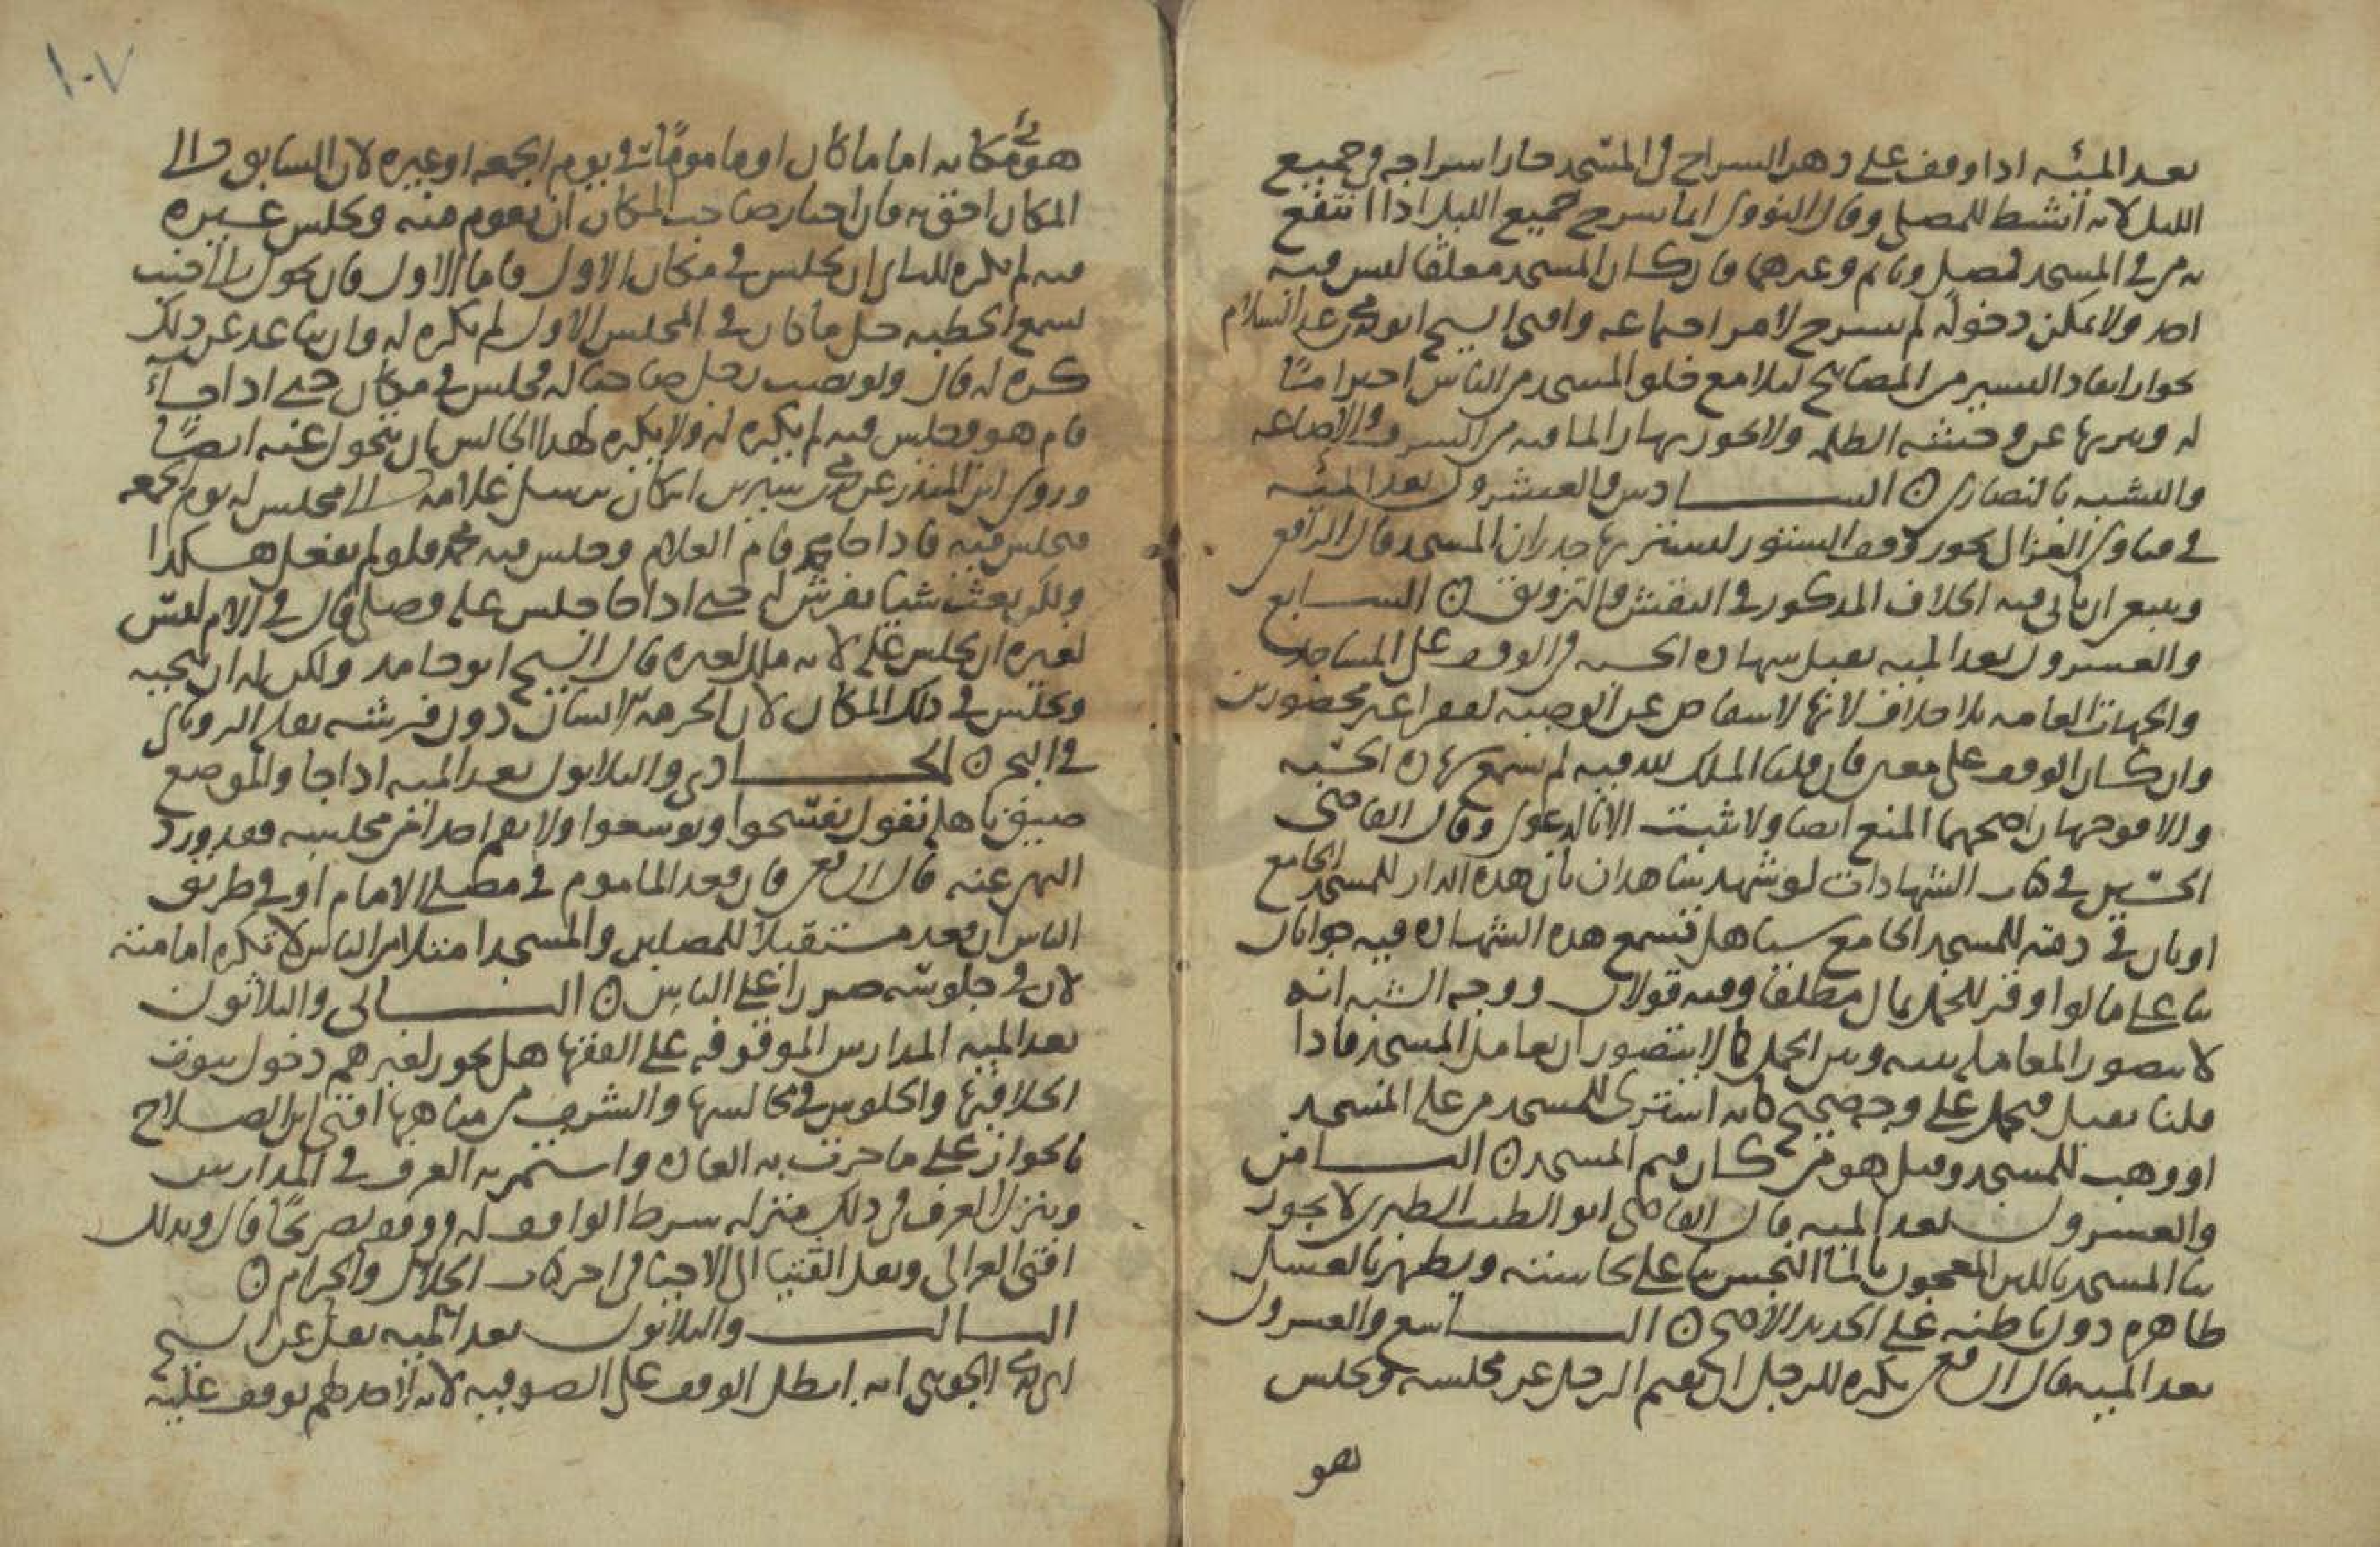 بعد المئه اذا وقف على دهن السراج في المسجد جاز اسراجه في جميع
الليل لانه انشط للمصلي وقال النووي انما يسرج جميع الليل اذا انتفع
به من في المسجد كمصل ونائم وغيرهما فان كان المسجد مغلقا ليس فيه
احد ولا يمكن دخوله لم يسرج لامر اضاعه وافتى الشيخ ابو محمد بن عبد السلام
بجواز ايقاد اليسير من المصابيح ليلا مع خلو المسجد من الناس احتراما
له وتنزيها عن وحشه الظلمه ولا يجوز نهارا لما فيه من السرف والاضاعه
والتشبه بالنصارى ۞ السادس والعشرون بعد المئه
في فتاوى الغزالي يجوز وقف الستور ليستر بها جدران المسجد قال الرافعي
وينبغي ان ياتي فيه الخلاف المذكور في النقش والتزويق ۞ السابع
والعشرون بعد الميه تقبل شهاده الحسبه في الوقف على المساجد
والجهات العامه بلا خلاف لانها لا تتقاصر عن الوصيه لفقرا غير محصورين
وان كان الوقف على معين فان قلنا الملك لله فيه لم تسمع شهاده الحسبه
والا فوجهان اصحهما المنع ايضا ولا تثبت الا بالدعوى وقال القاضي
الحسين في كتاب الشهادات لو شهد شاهدان بان هذه الدار للمسجد الجامع
او بان في ذمته للمسجد الجامع شيا هل تسمع هذه الشهاده فيه جوابان
بنا على ما لو اوقر للحمل بمال مطلقا وفيه قولان ووجه الشبه انه
لا يتصور المعامله بينه وبين الحمل كما لا يتصور ان يعامل المسجد فاذا
قلنا تقبل فيحمل على وجه صحيح كانه اشترى للمسجد من على المسجد
او وهب للمسجد وقبل هو من كان قيم المسجد ۞ الثامن
والعشرون بعد الميه قال القاضي ابو الطيب الطبري لا يجوز
بنا المسجد باللبن المعجون بالما النجس بنا على نجاسته ويطهر بالغسل
ظاهره دون باطنه على الجديد الاصح ۞ التاسع والعشرون
بعد الميه قال الشافعي يكره للرجل ان يقيم الرجل عن مجلسه ويجلس
هو
هو في مكانه اماما كان او ماموما في يوم الجمعه او غيره لان السابق الى
المكان احق به فان اختار صاحب المكان ان يقوم منه ويجلس غيره
فيه لم يكره للثاني ان يجلس في مكان الاول واما الاول فان تحول الى حيث
يسمع الخطبه مثل ما كان في المجلس الاول لم يكره له وان تباعد عن ذلك
كره له قال ولو نصب رجل صاحبا له فجلس في مكان حتى اذا جاء
قام هو وجلس فيه لم يكره له ولا يكره لهذا الجالس ان يتحول عنه ايضا
وروى ابن المنذر عن محمد بن سيرين انه كان يرسل غلامه الى مجلس له يوم الجمعه
فيجلس فيه فاذا جا محمد قام الغلام وجلس فيه محمد فلو لم يفعل هكذا
ولكن بعث شيا يفرش له حتى اذا جا جلس عليه وصلى قال في الام ليس
لغيره ان يجلس عليه لانه ملك لغيره قال الشيخ ابو حامد ولكن له ان ينحيه
ويجلس في ذلك المكان لان الحرمه للانسان دون فرشه نقله الروياني
في البحر ۞ الحادي والثلاثون بعد الميه اذا جا والموضع
ضيق باهله نقول تفسحوا وتوسعوا ولا يقم احد اخر مجلسه فقد ورد
النهي عنه قال الشافعي فان قعد الماموم في مصلى الامام او في طريق
الناس او قعد مستقبلا للمصلين والمسجد ممتلا من الناس لا تكره اقامته
لان في جلوسه ضررا على الناس ۞ الثاني والثلاثون
بعد الميه المدارس الموقوفه على الفقها هل يجوز لغيرهم دخول بيوت
الخلا فيها والجلوس في مجالسها والشرب من مياهها افتى ابن الصلاح
بالجواز على ما جرت به العاده واستمر به العرف في المدارس
وينزل العرف في ذلك منزله شرط الواقف له في وقفه تصريحا قال وبذلك
افتى الغزالي ونقل الفتيا الى الاحيا في اخر كتاب الحلال والحرام ۞
الثالث والثلاثون بعد الميه نقل عن الشيخ
ابي محمد الجويني انه ابطل الوقف على الصوفيه لانه لا حد لهم يوقف عليه